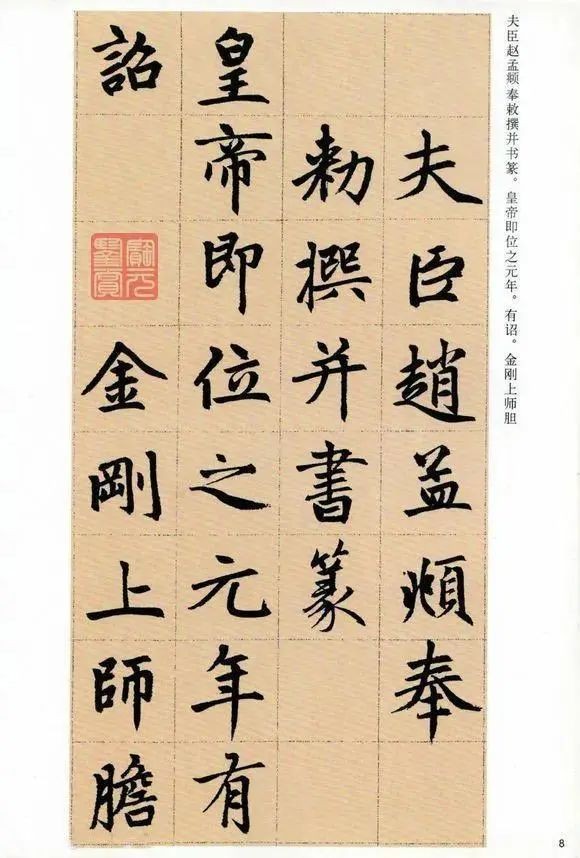 夫臣赵孟頫奉敕撰并书篆。皇帝即位之元年。有诏。金刚上师胆
夫臣趙孟頫奉
勅撰并書篆
皇帝即位之元年有
詔
金剛上師膽
8